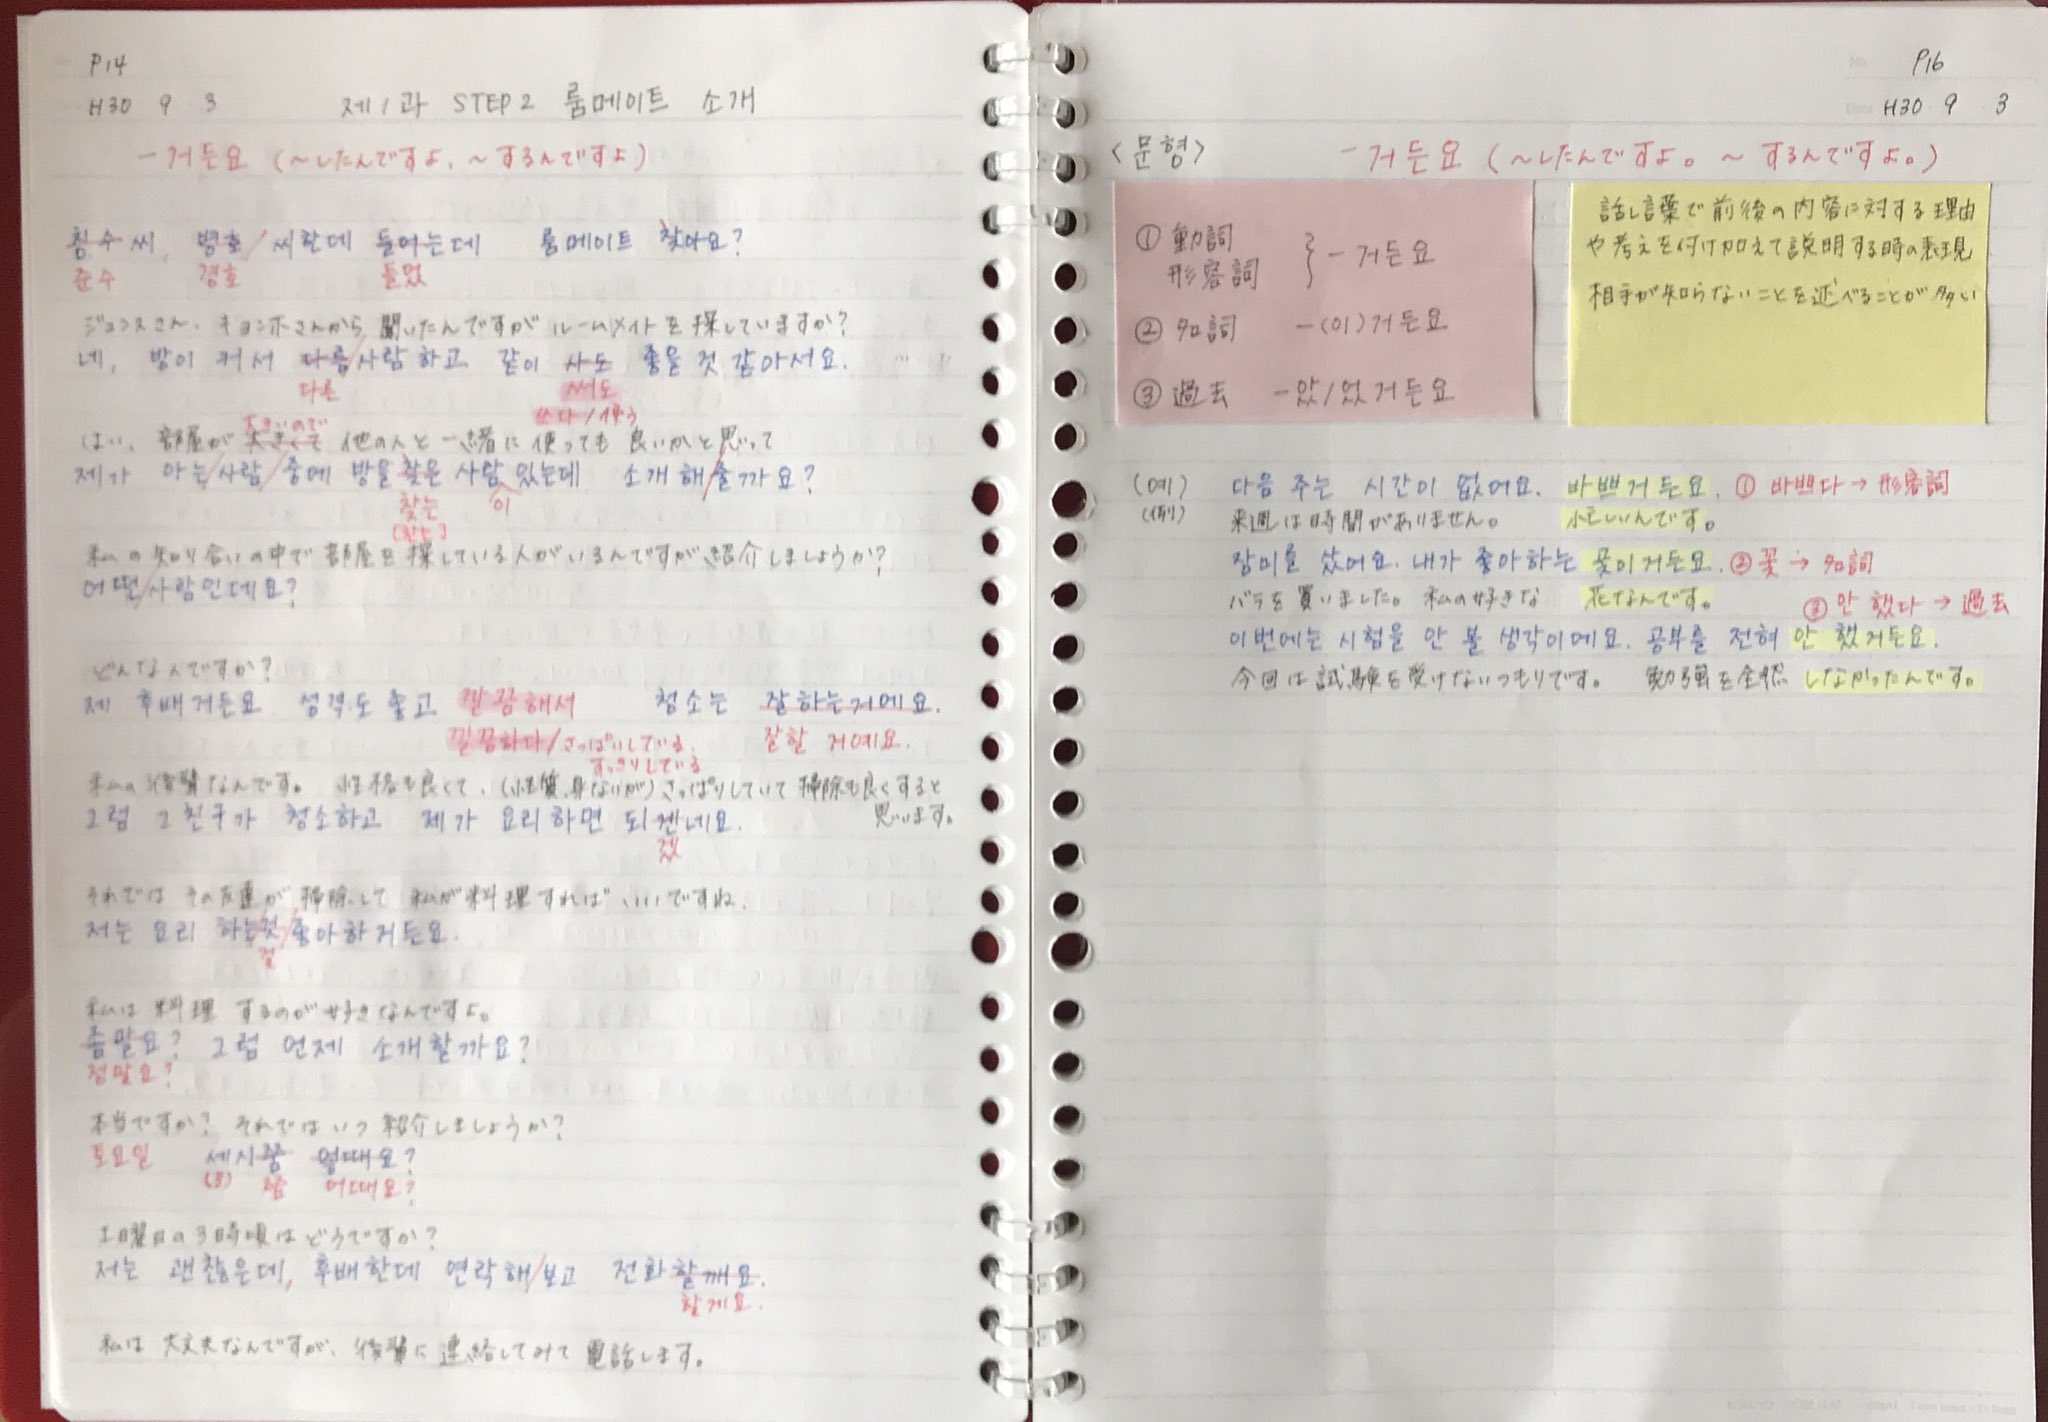 P14
H30 9 3 제1과 STEP2 룸메이트 소개
-거든요 (~したんですよ、~するんですよ)
칭수씨, 병호/씨한테 들어는데 룸메이트 찾아요?
준수 경호 들었
ジュンスさん、キョンホさんから聞いたんですがルームメイトを探していますか?
네, 방이 커서 다름/사람하고 같이 사도 좋을 것 같아서요.
다른 써도
쓰다/使う
大きいので
はい、部屋が大きくて他の人と一緒に使っても良いかと思って
제가 아는/사람/중에 방을 찾은 사람 있는데 소개해/줄까요?
찾는 이
[찬는]
私の知り合いの中で部屋を探している人がいるんですが紹介しましょうか?
어떤/사람인데요?
どんなんですか?
제 후배거든요 성격도 좋고 깔끔해서 청소는 잘하는거에요.
깔끔하다/さっぱりしている 잘할 거예요.
すっきりしている
私の後輩なんです。性格も良くて、(性質、身なりが)さっぱりしていて掃除も良くすると
思います。
그럼 그 친구가 청소하고 제가 요리하면 되겐네요.
겠
それではその友達が掃除して私が料理すればいいですね。
저는 요리 하는것/좋아하거든요.
걸
私は料理するのが好きなんですよ。
좀말요? 그럼 언제 소개할까요?
정말요?
本当ですか? それではいつ紹介しましょうか?
토요일 세시쭘 엏때요?
(3) 쯤 어때요?
土曜日の3時頃はどうですか?
저는 괜찮은데, 후배한데 연락해/보고 전화할께요.
할게요.
私は大丈夫なんですが、後輩に連絡してみて電話します。
P16
H30 9 3
<문형> -거든요 (~したんですよ。~するんですよ。)
① 動詞
形容詞 } -거든요
② 名詞 -(이)거든요
③ 過去 -았/었거든요
話し言葉で前後の内容に対する理由
や考えを付け加えて説明する時の表現
相手が知らないことを述べることが多い
(예) 다음 주는 시간이 없어요. 바쁘거든요. ① 바쁘다→形容詞
(例) 来週は時間がありません。 忙しいんです。
장미를 샀어요. 내가 좋아하는 꽃이거든요. ② 꽃→名詞
バラを買いました。私の好きな 花なんです。
③ 안 했다→過去
이번에는 시험을 안 볼 생각이에요. 공부를 전혀 안 했거든요.
今回は試験を受けないつもりです。 勉強を全然しなかったんです。